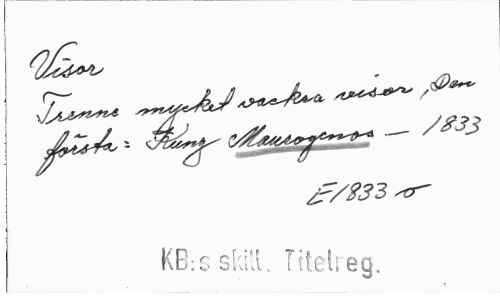 Visor
Trenne mycket vackra visor, Den
första: Kung Maurogenos — 1833
E1833 σ
KB:s skill. Titelreg.